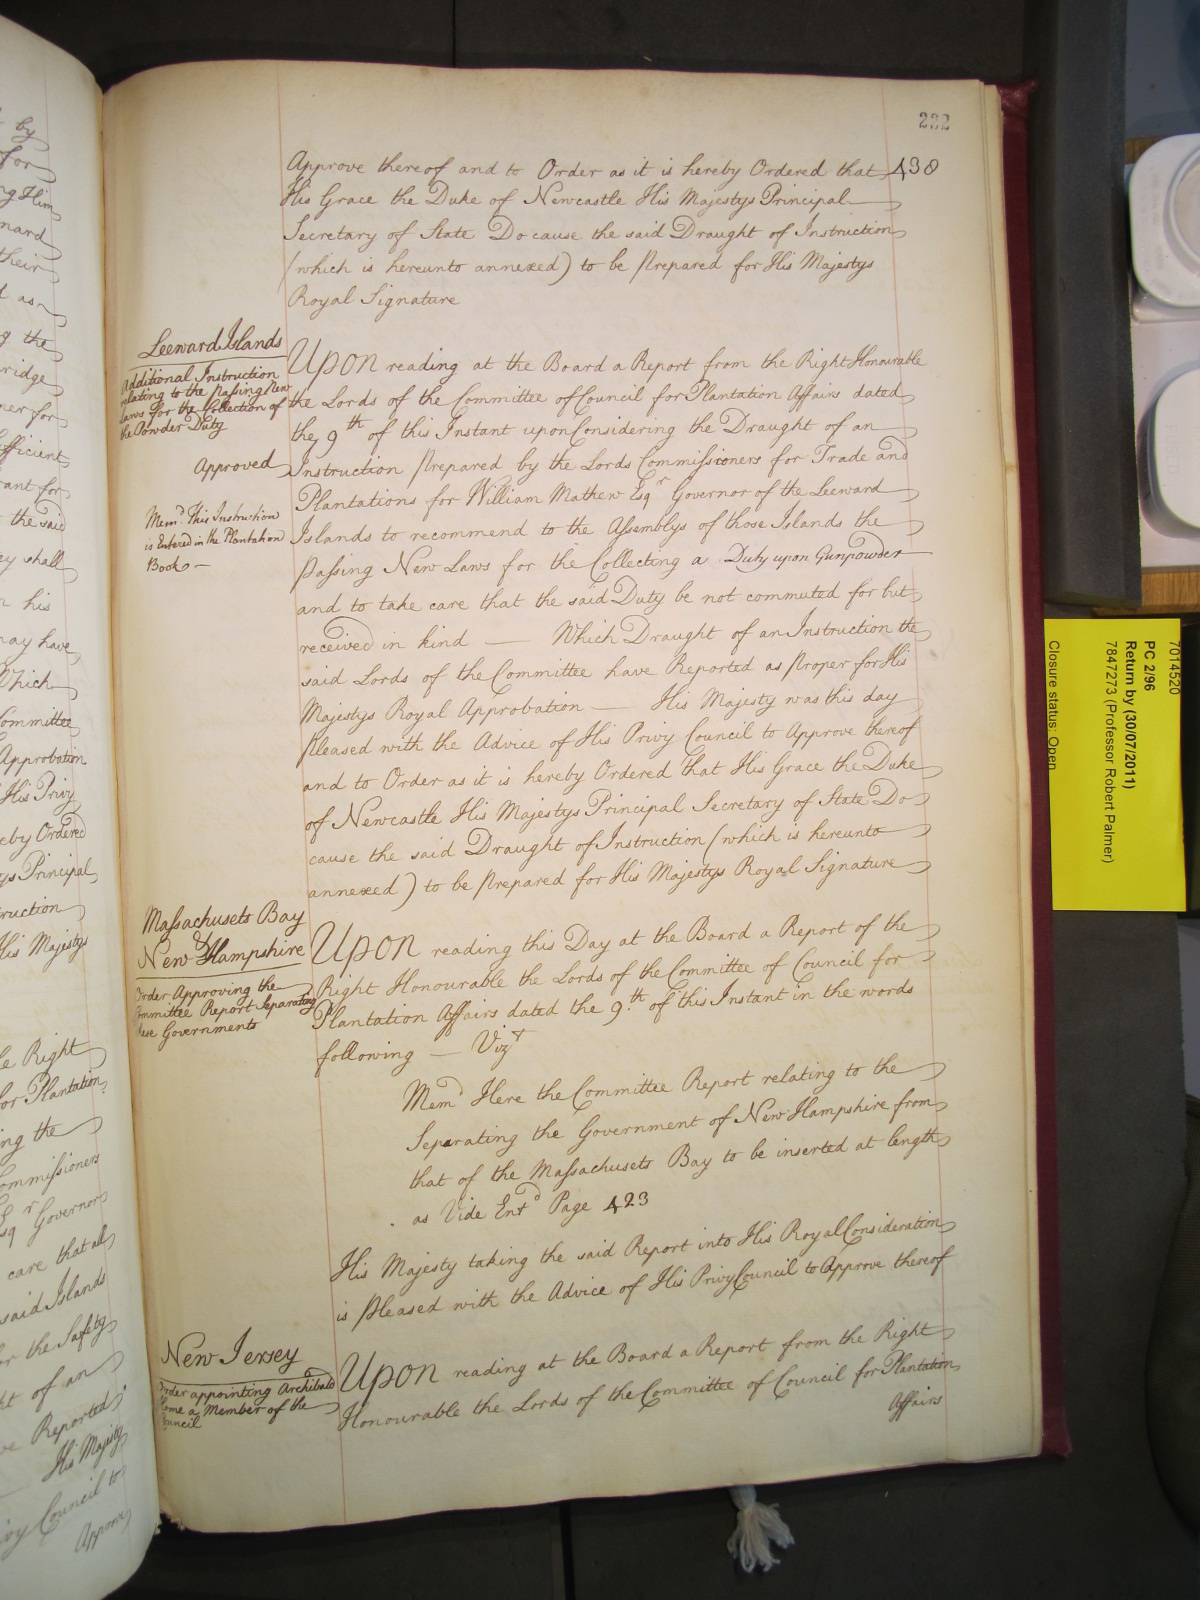 232
438
Approve thereof and to Order as it is hereby Ordered that
His Grace the Duke of Newcastle His Majestys Principal
Secretary of State Do cause the said Draught of Instruction
(which is hereunto annexed) to be prepared for His Majestys
Royal Signature
Leeward Islands
Additional Instruction
relating to the passing New
Laws for the Collection of
the Powder Duty
Approved
Mem.d This Instruction
is Entered in the Plantation
Book
UPON reading at the Board a Report from the Right Honourable
the Lords of the Committee of Council for Plantation Affairs dated
the 9th of this Instant upon Considering the Draught of an
Instruction prepared by the Lords Commissioners for Trade and
Plantations for William Mathew Esqr Governor of the Leeward
Islands to recommend to the Assemblys of those Islands the
passing New Laws for the Collecting a Duty upon Gunpowder
and to take care that the said Duty be not commuted for but
received in kind — Which Draught of an Instruction the
said Lords of the Committee have Reported as proper for His
Majestys Royal Approbation — His Majesty was this day
pleased with the Advice of His Privy Council to Approve thereof
and to Order as it is hereby Ordered that His Grace the Duke
of Newcastle His Majestys Principal Secretary of State Do
cause the said Draught of Instruction (which is hereunto
annexed) to be prepared for His Majestys Royal Signature
Massachusets Bay
&
New Hampshire
Order Approving the
Committee Report Separating
these Governments
UPON reading this Day at the Board a Report of the
Right Honourable the Lords of the Committee of Council for
Plantation Affairs dated the 9.th of this Instant in the words
following — Vizt
Mem.d Here the Committee Report relating to the
Separating the Government of New Hampshire from
that of the Massachusets Bay to be inserted at length
as Vide Entd Page 423
His Majesty taking the said Report into His Royal Consideration
is pleased with the Advice of His Privy Council to Approve thereof
New Jersey
Order appointing Archibald
Home a Member of the
Council
UPON reading at the Board a Report from the Right
Honourable the Lords of the Committee of Council for Plantation
Affairs
7014520
PC 2/96
Return by (30/07/2011)
7847273 (Professor Robert Palmer)
Closure status: Open